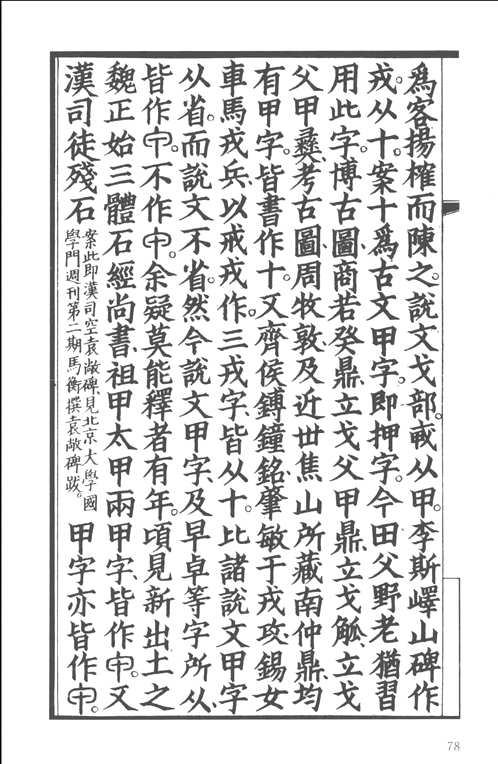 爲客揚榷而陳之。說文戈部。䢻从甲。李斯嶧山碑作
戎。从十。案十爲古文甲字。即押字。今田父野老猶習
用此字。博古圖商若癸鼎、立戈父甲鼎、立戈觚、立戈
父甲彝、考古圖周牧敦、及近世焦山所藏南仲鼎、均
有甲字。皆書作十。又齊侯鎛鐘銘、肈敏于戎攻、錫女
車馬戎兵、以戒戎作。三戎字、皆从十。比諸說文甲字
从省。而說文不省。然今說文甲字、及早卓等字所从、
皆作𠇚。不作中。余疑莫能釋者有年。頃見新出土之
魏正始三體石經尚書、祖甲太甲兩甲字、皆作。又
漢司徒殘石
案此即漢司空袁敞碑、見北京大學國
學門週刊第二期馬衡撰袁敞碑跋。
甲字亦皆作。
78